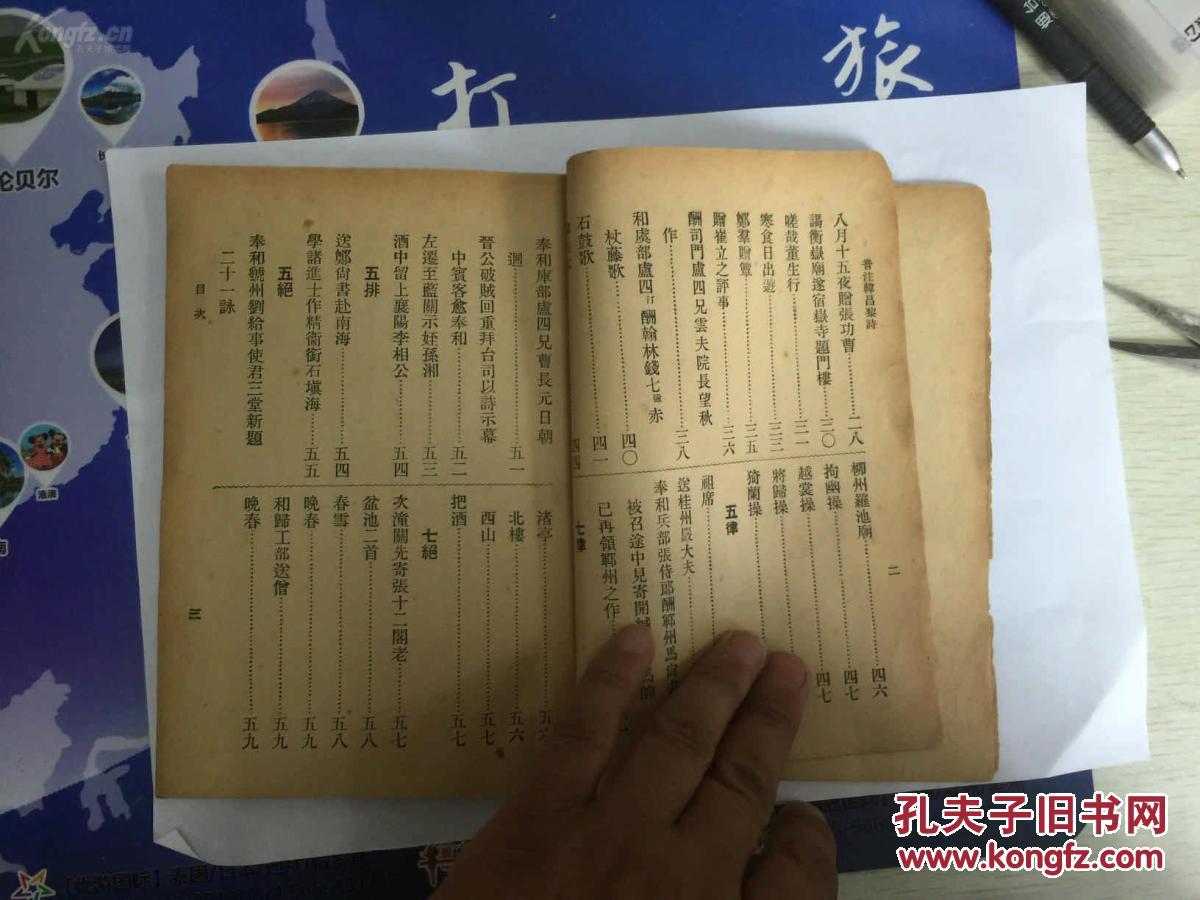 Kongfz.cn
孔夫子旧书网
打
旅
烟台
伦贝尔
港澳
音注韓昌黎詩
二
八月十五夜贈張功曹 二八
謁衡嶽廟遂宿嶽寺題門樓 三〇
嗟哉董生行 三一
寒食日出遊 三三
鄭羣贈簟 三五
贈崔立之評事 三六
酬司門盧四兄雲夫院長望秋
作 三八
和虞部盧四汀酬翰林錢七徽赤
杖藤歌 四〇
石鼓歌 四一
四四
柳州羅池廟 四六
拘幽操 四七
越裳操 四七
將歸操
猗蘭操
五律
祖席
送桂州嚴大夫
奉和兵部張侍郎酬鄆州馬尙
被召途中見寄開
已再領鄆州之作
七律
奉和庫部盧四兄曹長元日朝
迴 五一
晉公破賊回重拜台司以詩示幕
中賓客愈奉和 五二
左遷至藍關示姪孫湘 五三
酒中留上襄陽李相公 五四
五排
送鄭尙書赴南海 五四
學諸進士作精衞銜石塡海 五五
五絕
奉和虢州劉給事使君三堂新題
二十一詠
渚亭
北樓 五六
西山 五七
把酒 五七
七絕
次潼關先寄張十二閣老 五七
盆池二首 五八
春雪 五八
晚春 五九
和歸工部送僧 五九
晚春 五九
目次
三
孔夫子旧书网
www.kongfz.com